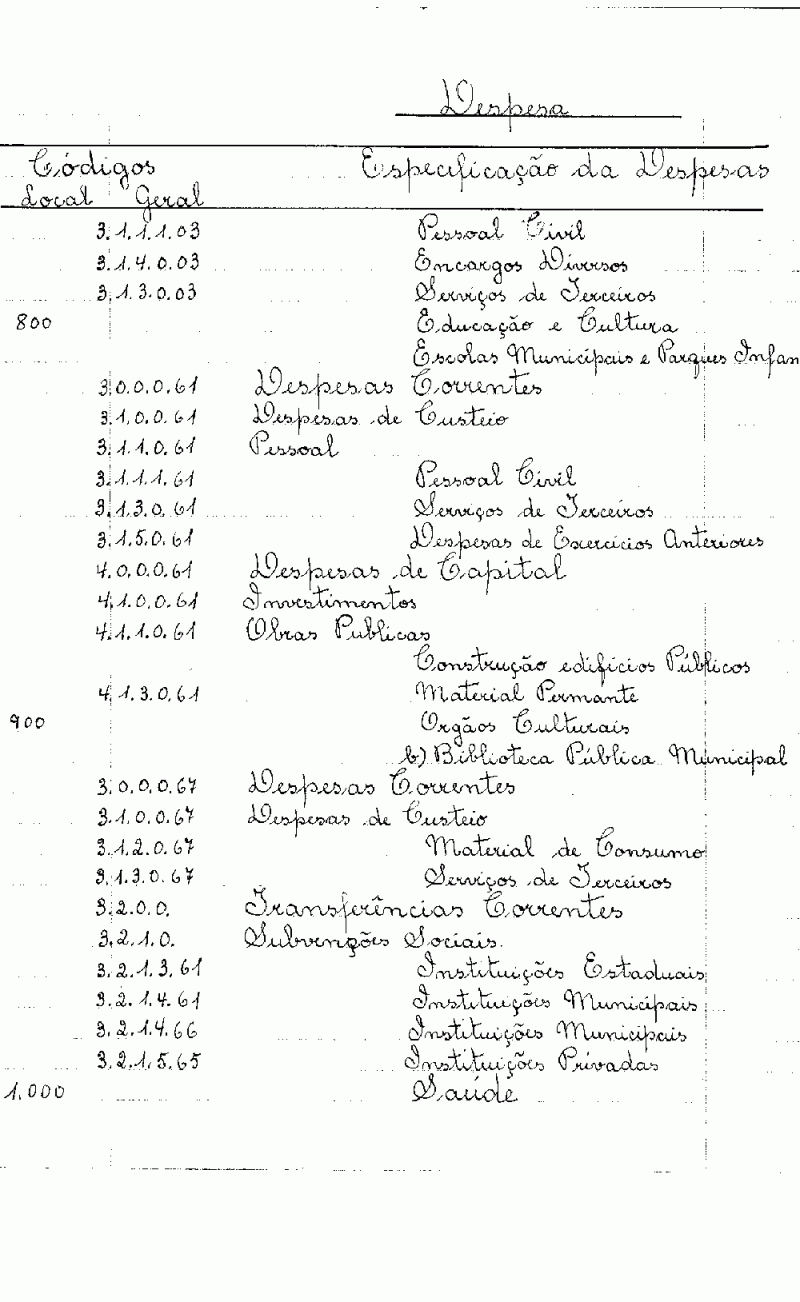 Despesa
Códigos Especificação da Despesas
Local Geral
3.1.1.1.03 Pessoal Civil
3.1.4.0.03 Encargos Diversos
3.1.3.0.03 Serviços de Terceiros
800 Educação e Cultura
Escolas Municipais e Parques Infan
3.0.0.0.61 Despesas Correntes
3.1.0.0.61 Despesas de Custeio
3.1.1.0.61 Pessoal
3.1.1.1.61 Pessoal Civil
3.1.3.0.61 Serviços de Terceiros
3.1.5.0.61 Despesas de Exercícios Anteriores
4.0.0.0.61 Despesas de Capital
4.1.0.0.61 Investimentos
4.1.1.0.61 Obras Publicas
Construção edifícios Públicos
4.1.3.0.61 Material Permante
900 Orgãos Culturais
b) Biblioteca Pública Municipal
3.0.0.0.67 Despesas Correntes
3.1.0.0.67 Despesas de Custeio
3.1.2.0.67 Material de Consumo
3.1.3.0.67 Serviços de Terceiros
3.2.0.0. Transferências Correntes
3.2.1.0. Subvenções Sociais.
3.2.1.3.61 Instituições Estaduais
3.2.1.4.61 Instituições Municipais
3.2.1.4.66 Instituições Municipais
3.2.1.5.65 Instituições Privadas
1.000 Saúde